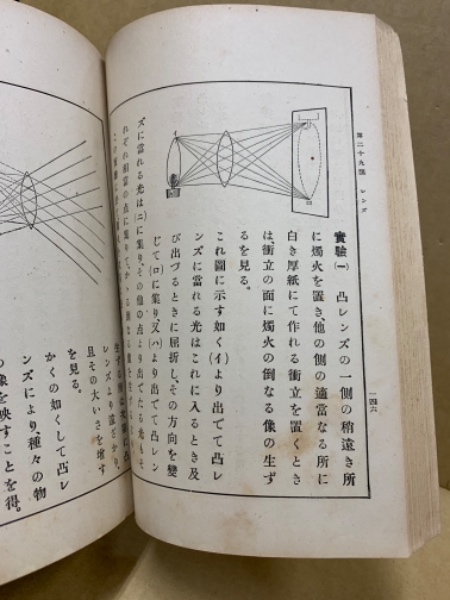 第二十九課 レンズ
一四六
實驗(一) 凸レンズの一側の稍遠き所
に燭火を置き、他の側の適當なる所に
白き厚紙にて作れる衝立を置くとき
は、衝立の面に燭火の倒なる像の生ず
るを見る。
これ圖に示す如く(イ)より出でて凸レ
ンズに當れる光はこれに入るとき及
び出づるときに屈折し、その方向を變
じて(ロ)に集り、又(ハ)より出でて凸レン
ズに當れる光は(ニ)に集り、その他の点より出でたる光もそ
れぞれ相當の点に集りて、かかる倒なる像を生ずるなり
レンズより遠ざかり、
且その大いさを増す
を見る。
かくの如くして凸レ
ンズにより、種々の物
の像を映すことを得。